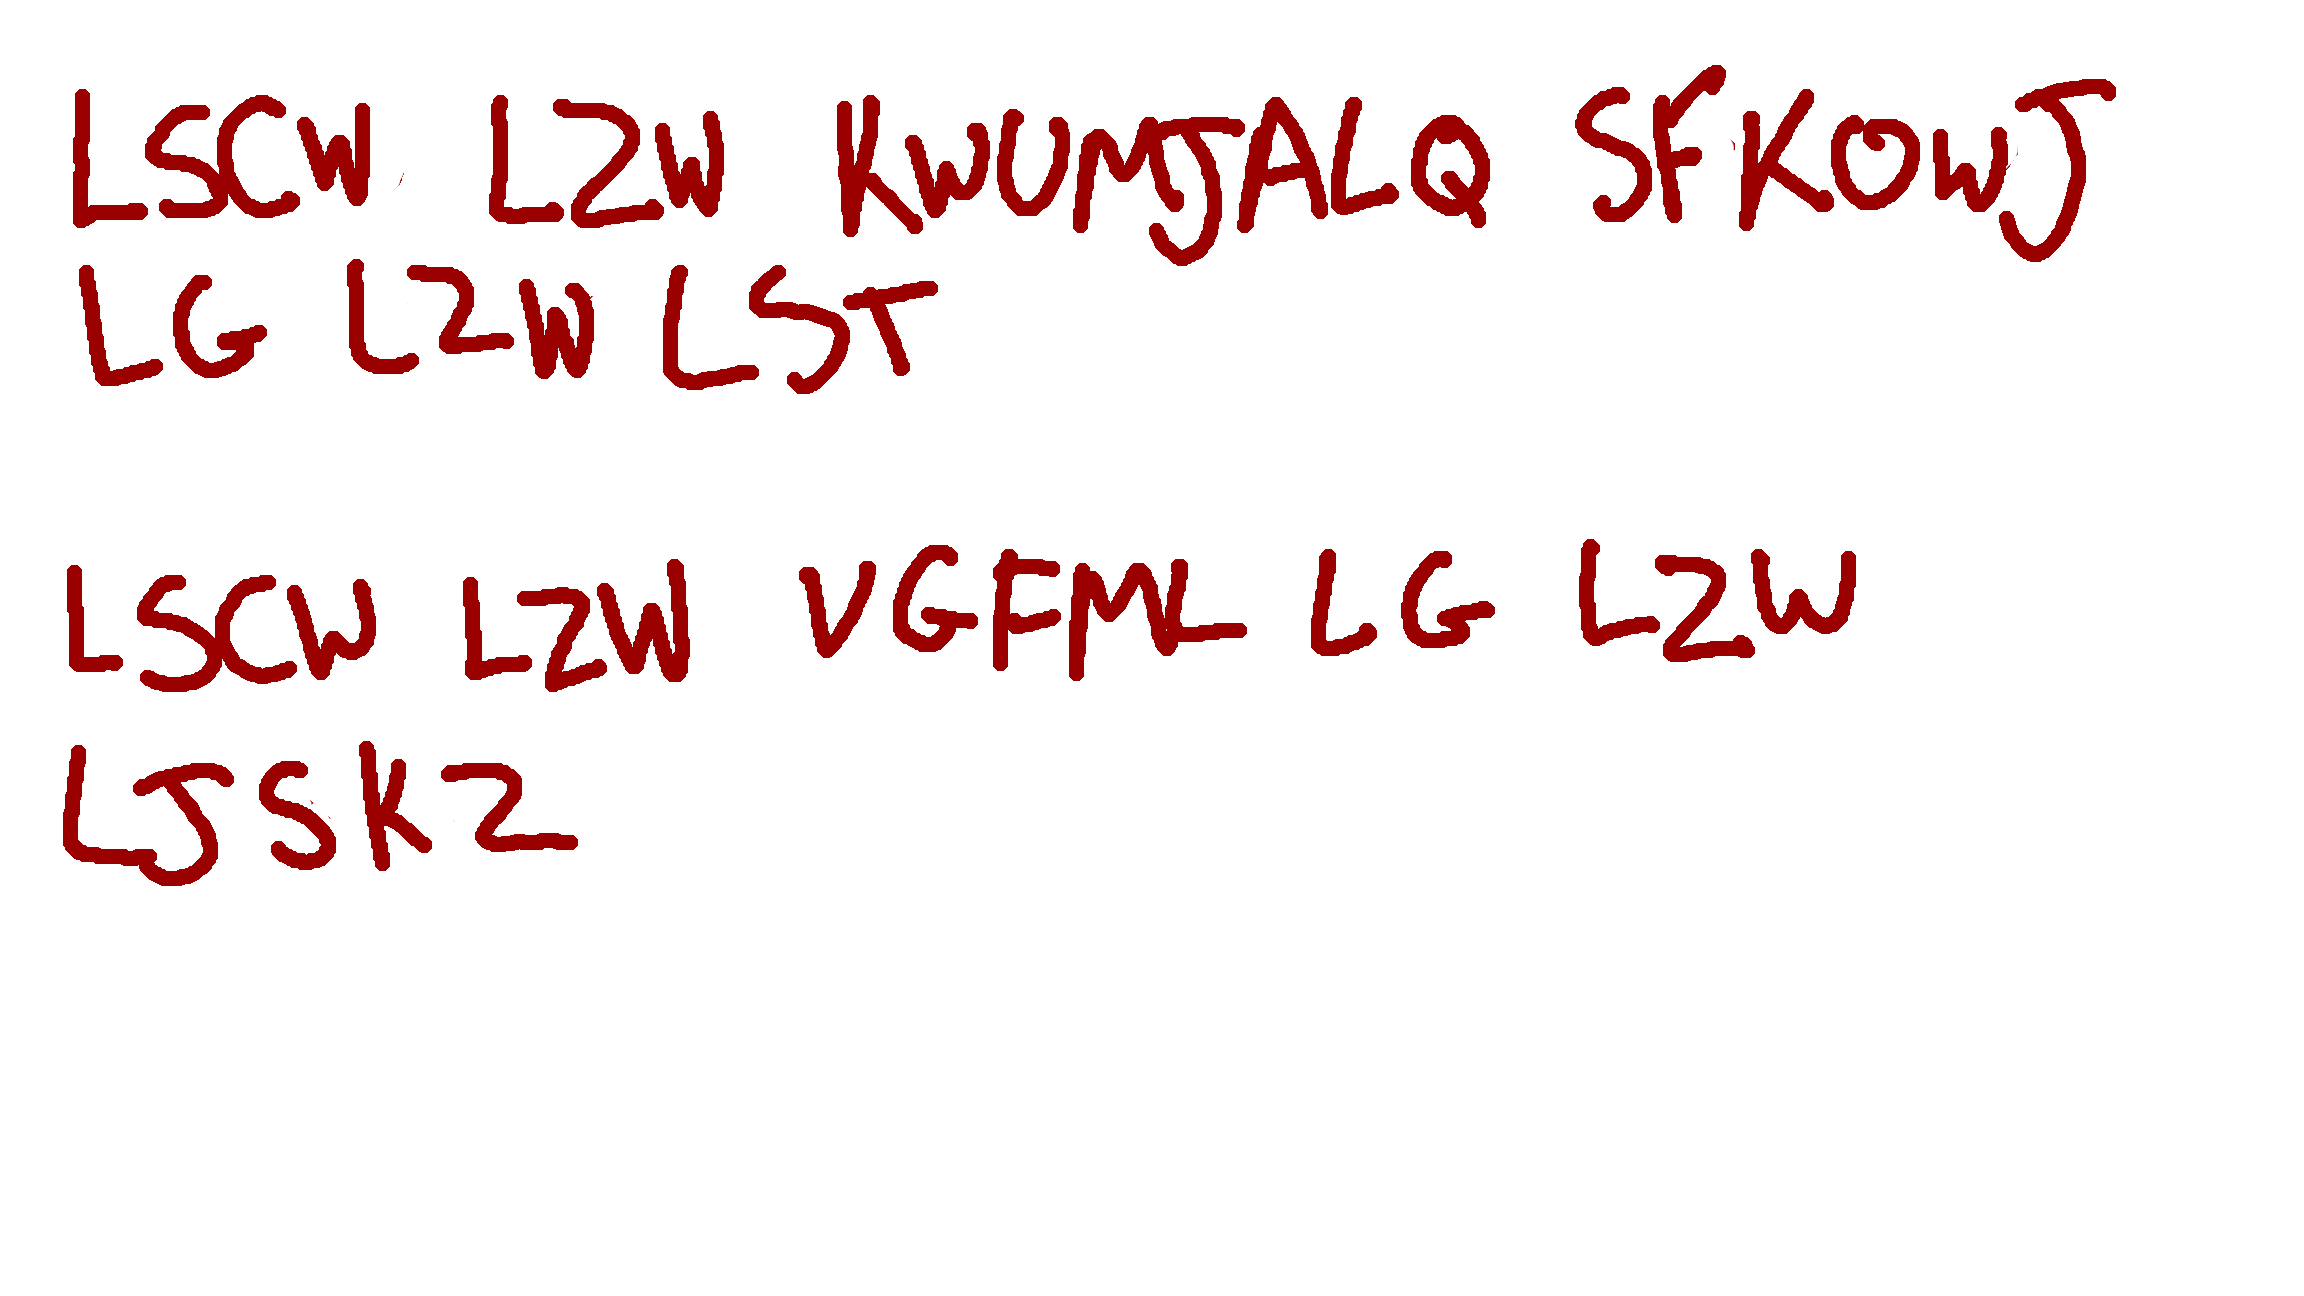 LSCW LZW KWUMJALQ SFKOWJ
LG LZW LST
LSCW LZW VGFML LG LZW
LJSKZ